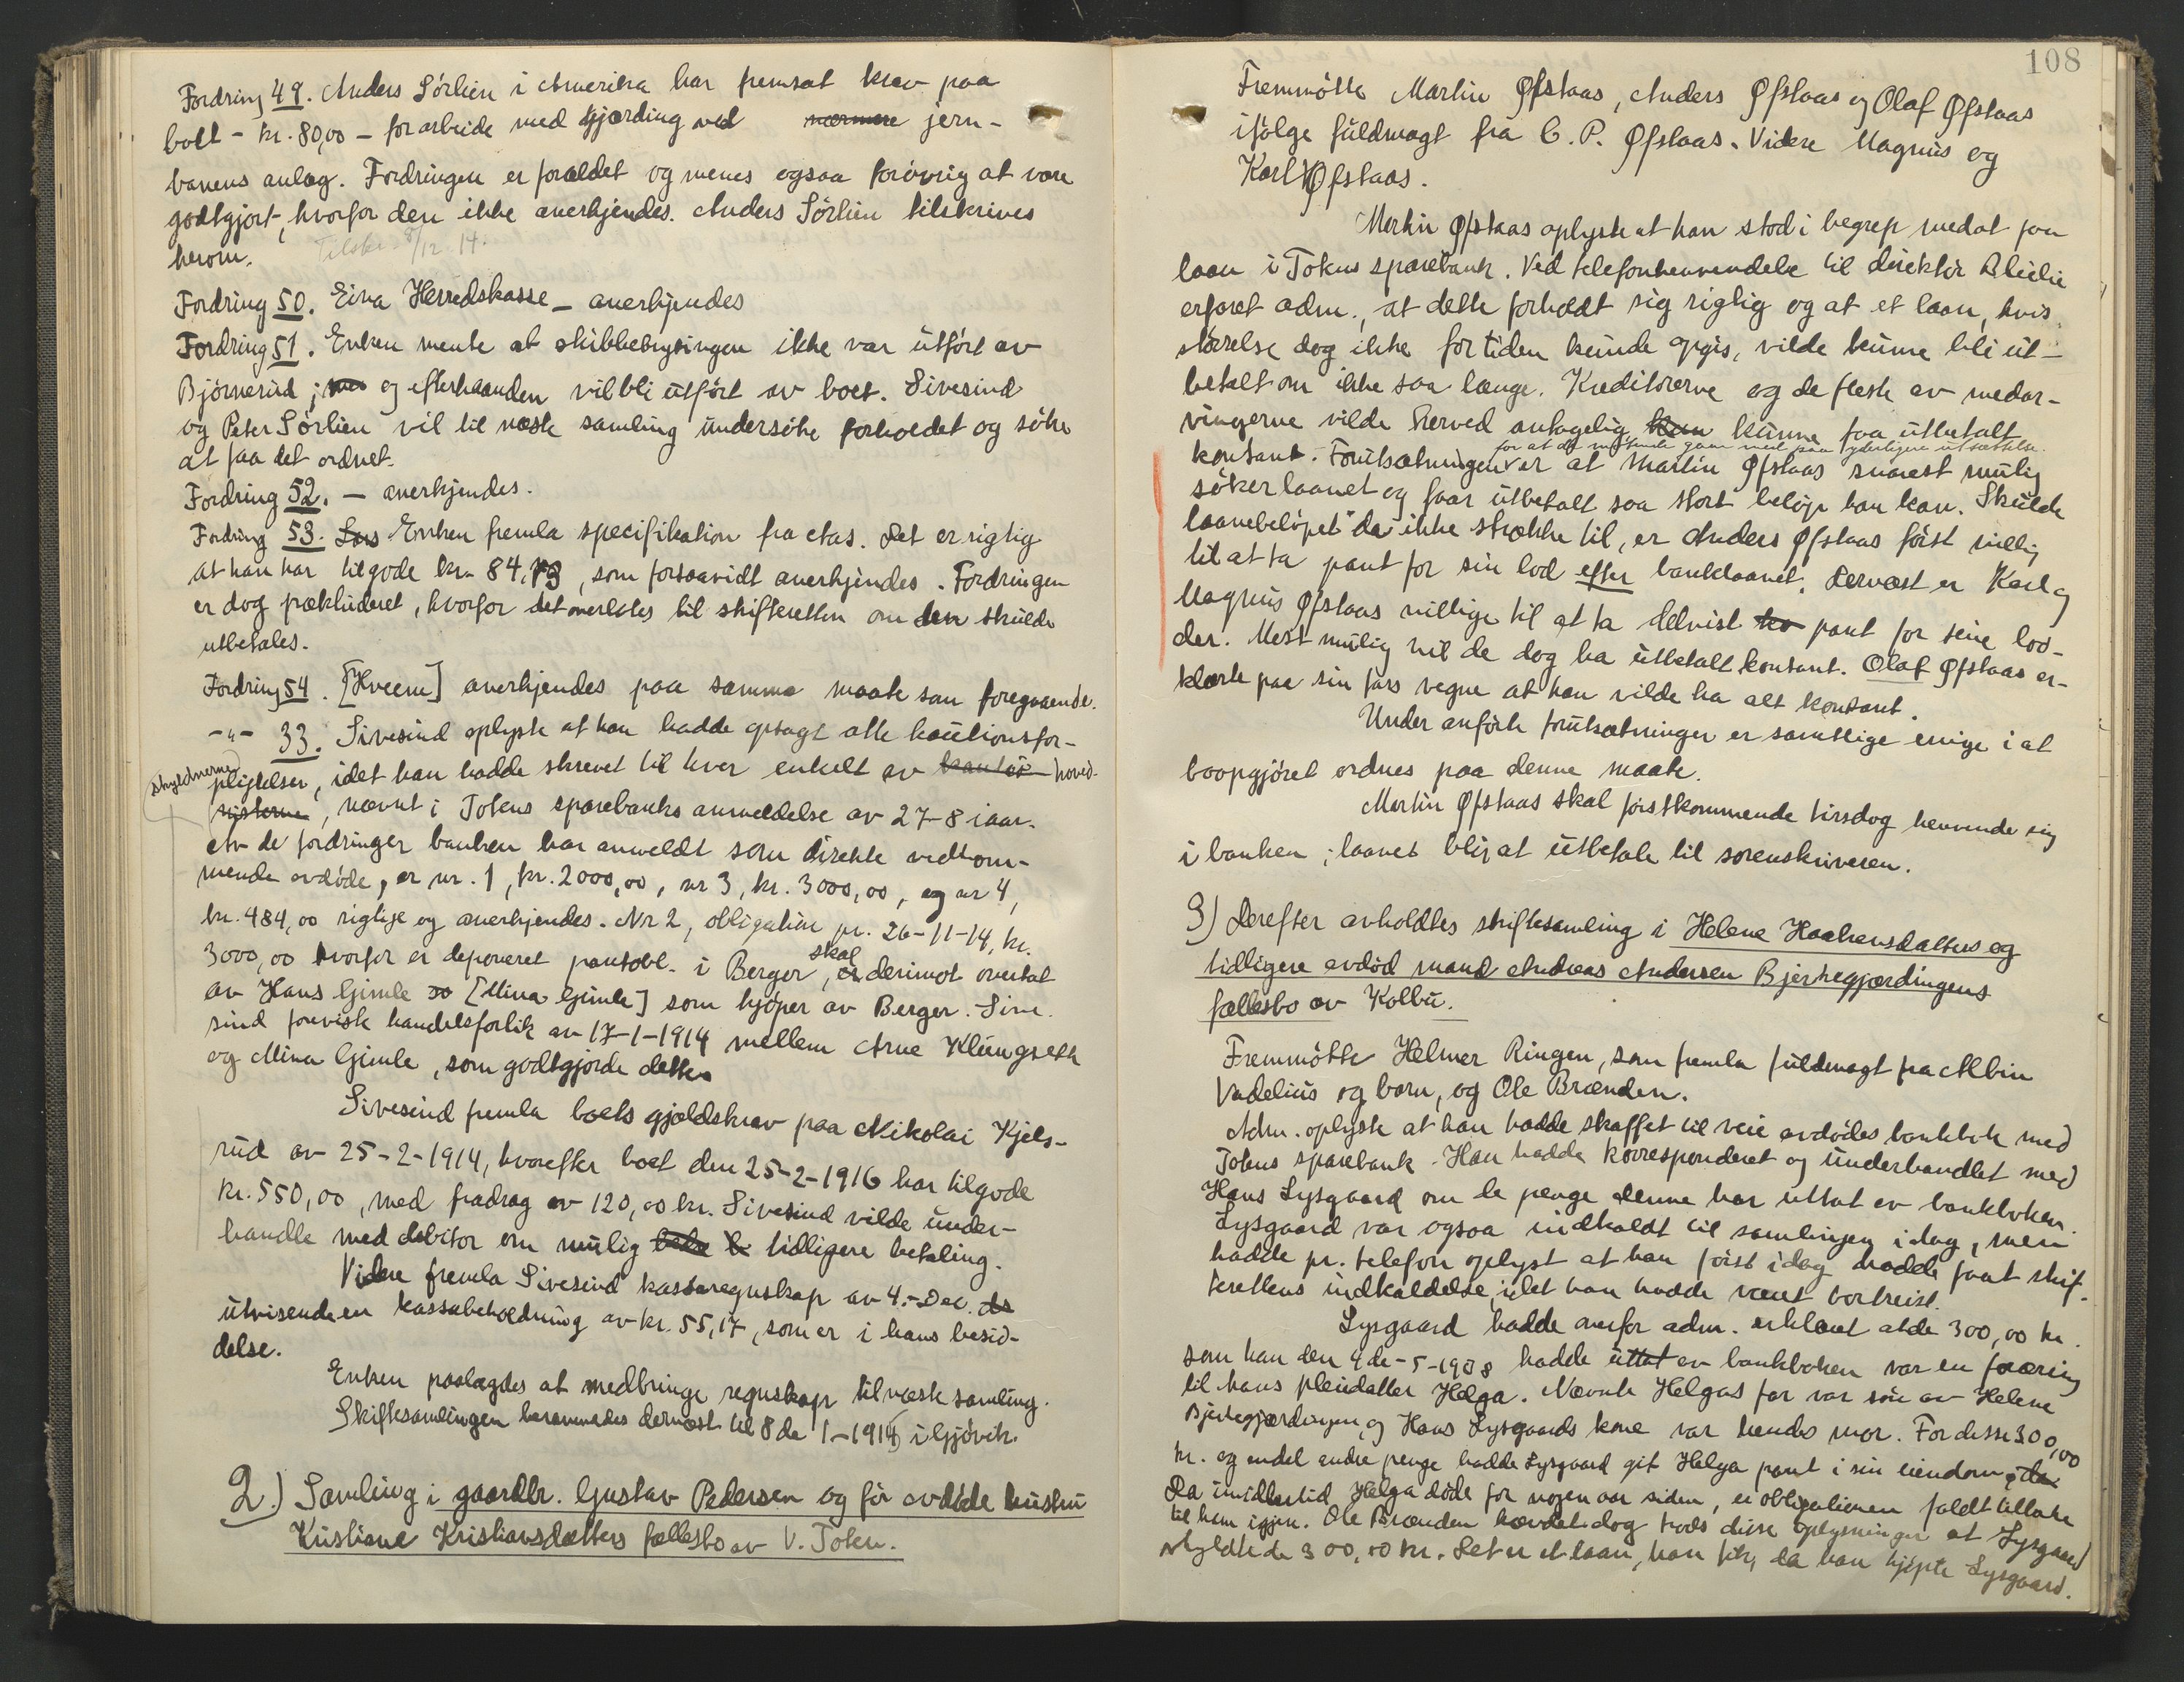 Fordring 49. Anders Sörlien i Amerika har fremsat krav paa
boet - kr. 80,00 - for arbeide med gjærding ved nærmere jern-
banens anlæg. Fordringen er forældet og menes ogsaa forøvrig at være
godtgjort, hvorfor den ikke anerkjendes. Anders Sörlien tilskrives
herom. Tilskr. 8/12 14.
Fordring 50. Eina Herredskasse - anerkjendes
Fordring 51. Enken mente at skibbebrytingen ikke var utfört av
Björnerud; men og efterhaanden vil bli utfört av boet. Sivesind
og Peter Sörlien vil til næste samling undersöke forholdet og söke
at faa det ordnet.
Fordring 52. - anerkjendes.
Fordring 53. Enken fremla specifikation fra Aas. Det er rigtig
at han har tilgode kr. 84,73, som forsaavidt anerkjendes. Fordringen
er dog prækluderet, hvorfor det overlates til skifteretten om den skulde
utbetales.
Fordring 54. [Hveem] anerkjendes paa samme maate som foregaaende.
-"- 33. Sivesind oplyste at han hadde opsagt alle kautionsfor-
pligtelser, idet han hadde skrevet til hver enkelt av hoved-
skyldnerne, nævnt i Totens sparebanks anmeldelse av 27-8 iaar.
Av de fordringer banken har anmeldt som direkte vedkom-
mende avdöde, er nr. 1, kr. 2000,00, nr 3, kr. 3000,00, og nr 4,
kr. 484,00 rigtige og anerkjendes. Nr 2, obligation pr. 26-11-14, kr.
3000,00 hvorfor er deponeret pantobl. i Berger, skal derimot overtat
av Hans Gimle [Mina Gimle] som kjöper av Berger. Sive-
sind foreviste handelsforlik av 17-1-1914 mellem Arne Klungseth
og Mina Gimle, som godtgjorde dette.
Sivesind fremla boets gjældskrav paa Nikolai Kjels-
rud av 25-2-1914, hvorefter boet den 25-2-1916 har tilgode
kr. 550,00, med fradrag av 120,00 kr. Sivesind vilde under-
handle med debitor om mulig tidligere betaling.
Videre fremla Sivesind kasseregnskap av 4. Dec.
utvisende en kassabeholdning av kr. 55,17, som er i hans besid-
delse.
Enken paalægdes at medbringe regnskap til næste samling.
Skiftesamlingen berammedes dernæst til 8de 1-1914 i Gjövik.
2.) Samling i gaardbr. Gustav Pedersen og för avdöde hustru
Kristiane Kristiansdatters fællesbo av V. Toten.
108
Fremmötte Martin Øfstaas, Anders Øfstaas og Olaf Øfstaas
ifölge fuldmagt fra C. P. Øfstaas. Videre Magnus og
Karl Øfstaas.
Martin Øfstaas oplyste at han stod i begrep med at faa
laan i Totens sparebank. Ved telefonhenvendelse til direktör
erfaret adm., at dette forholdt sig rigtig og at et laan, hvis
störrelse dog ikke for tiden kunde opgis, vilde kunne bli ut-
betalt om ikke saa længe. Kreditorerne og de fleste av medar-
vingerne vilde herved antagelig kunne faa utbetalt
for at de möttende gaar med paa yderligere utsættelse
kontant. Forutsætningen er at Martin Øfstaas snarest mulig
söker laanet og faar utbetalt saa stort belöp han kan. Skulde
laanebelöpet da ikke strække til, er Anders Øfstaas först villig
til at ta pant for sin lod efter banklaanet. Dernæst er Karl og
Magnus Øfstaas villige til at ta delvist pant for sine lod-
der. Mest mulig vil de dog ha utbetalt kontant. Olaf Øfstaas er-
klærte paa sin fars vegne at han vilde ha alt kontant.
Under anförte forutsætninger er samtlige enige i at
boopgjöret ordnes paa denne maate.
Martin Øfstaas skal förstkommende tirsdag henvende sig
i banken; laanet blir at utbetale til sorenskriveren.
3) Derefter avholdtes skiftesamling i Helene Haakensdatters og
tidligere avdöd mand Andreas Andersen Bjerkegjærdingens
fællesbo av Kolbu.
Fremmötte Helmer Ringen, som fremla fuldmagt fra Albin
Vadelius og barn, og Ole Brænden.
Adm. oplyste at han hadde skaffet til veie avdödes bankbok med
Totens sparebank. Han hadde korresponderet og underhandlet med
Hans Lysgaard om de penge denne har uttat av bankboken.
Lysgaard var ogsaa indkaldt til samlingen idag, men
hadde pr. telefon oplyst at han först idag hadde faat skif-
terettens indkaldelse, idet han hadde været bortreist.
Lysgaard hadde overfor adm. erklæret at de 300,00 kr.
som han den 9de-5-1908 hadde uttat av bankboken var en foræring
til hans pleiedatter Helga. Nævnte Helgas far var sön av Helene
Bjerkegjærdingen, og Hans Lysgaards kone var hendes mor. For disse 300,00
kr. og endel andre penge hadde Lysgaard git Helga pant i sin eiendom;
Da imidlertid Helga döde for nogen aar siden, er obligationen faldt tilbake
til ham igjen. Ole Brænden hævdet dog trods disse oplysninger at Lysgaard
skyldte de 300,00 kr. Det er et laan, han fik, da han kjöpte Lysgaard.